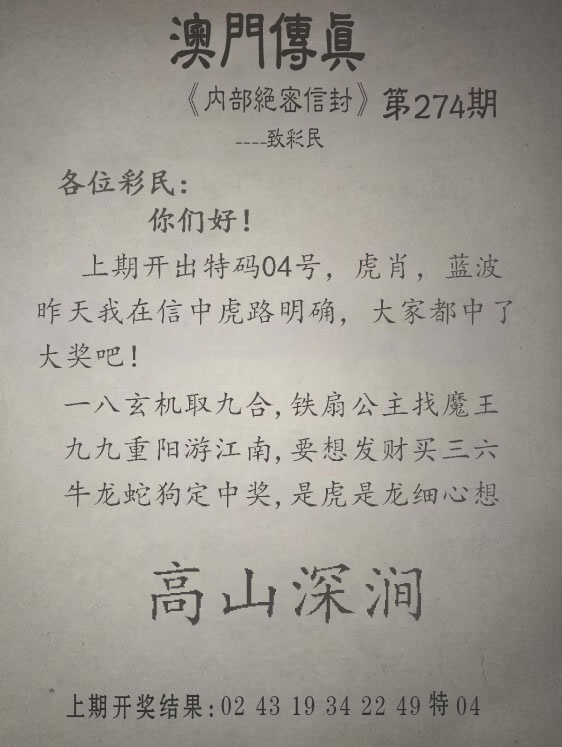 澳門傳眞
《内部絕密信封》第274期
----致彩民
各位彩民：
你们好！
上期开出特码04号，虎肖，蓝波
昨天我在信中虎路明确，大家都中了
大奖吧！
一八玄机取九合,铁扇公主找魔王
九九重阳游江南,要想发财买三六
牛龙蛇狗定中奖,是虎是龙细心想
高山深涧
上期开奖结果:02 43 19 34 22 49 特 04